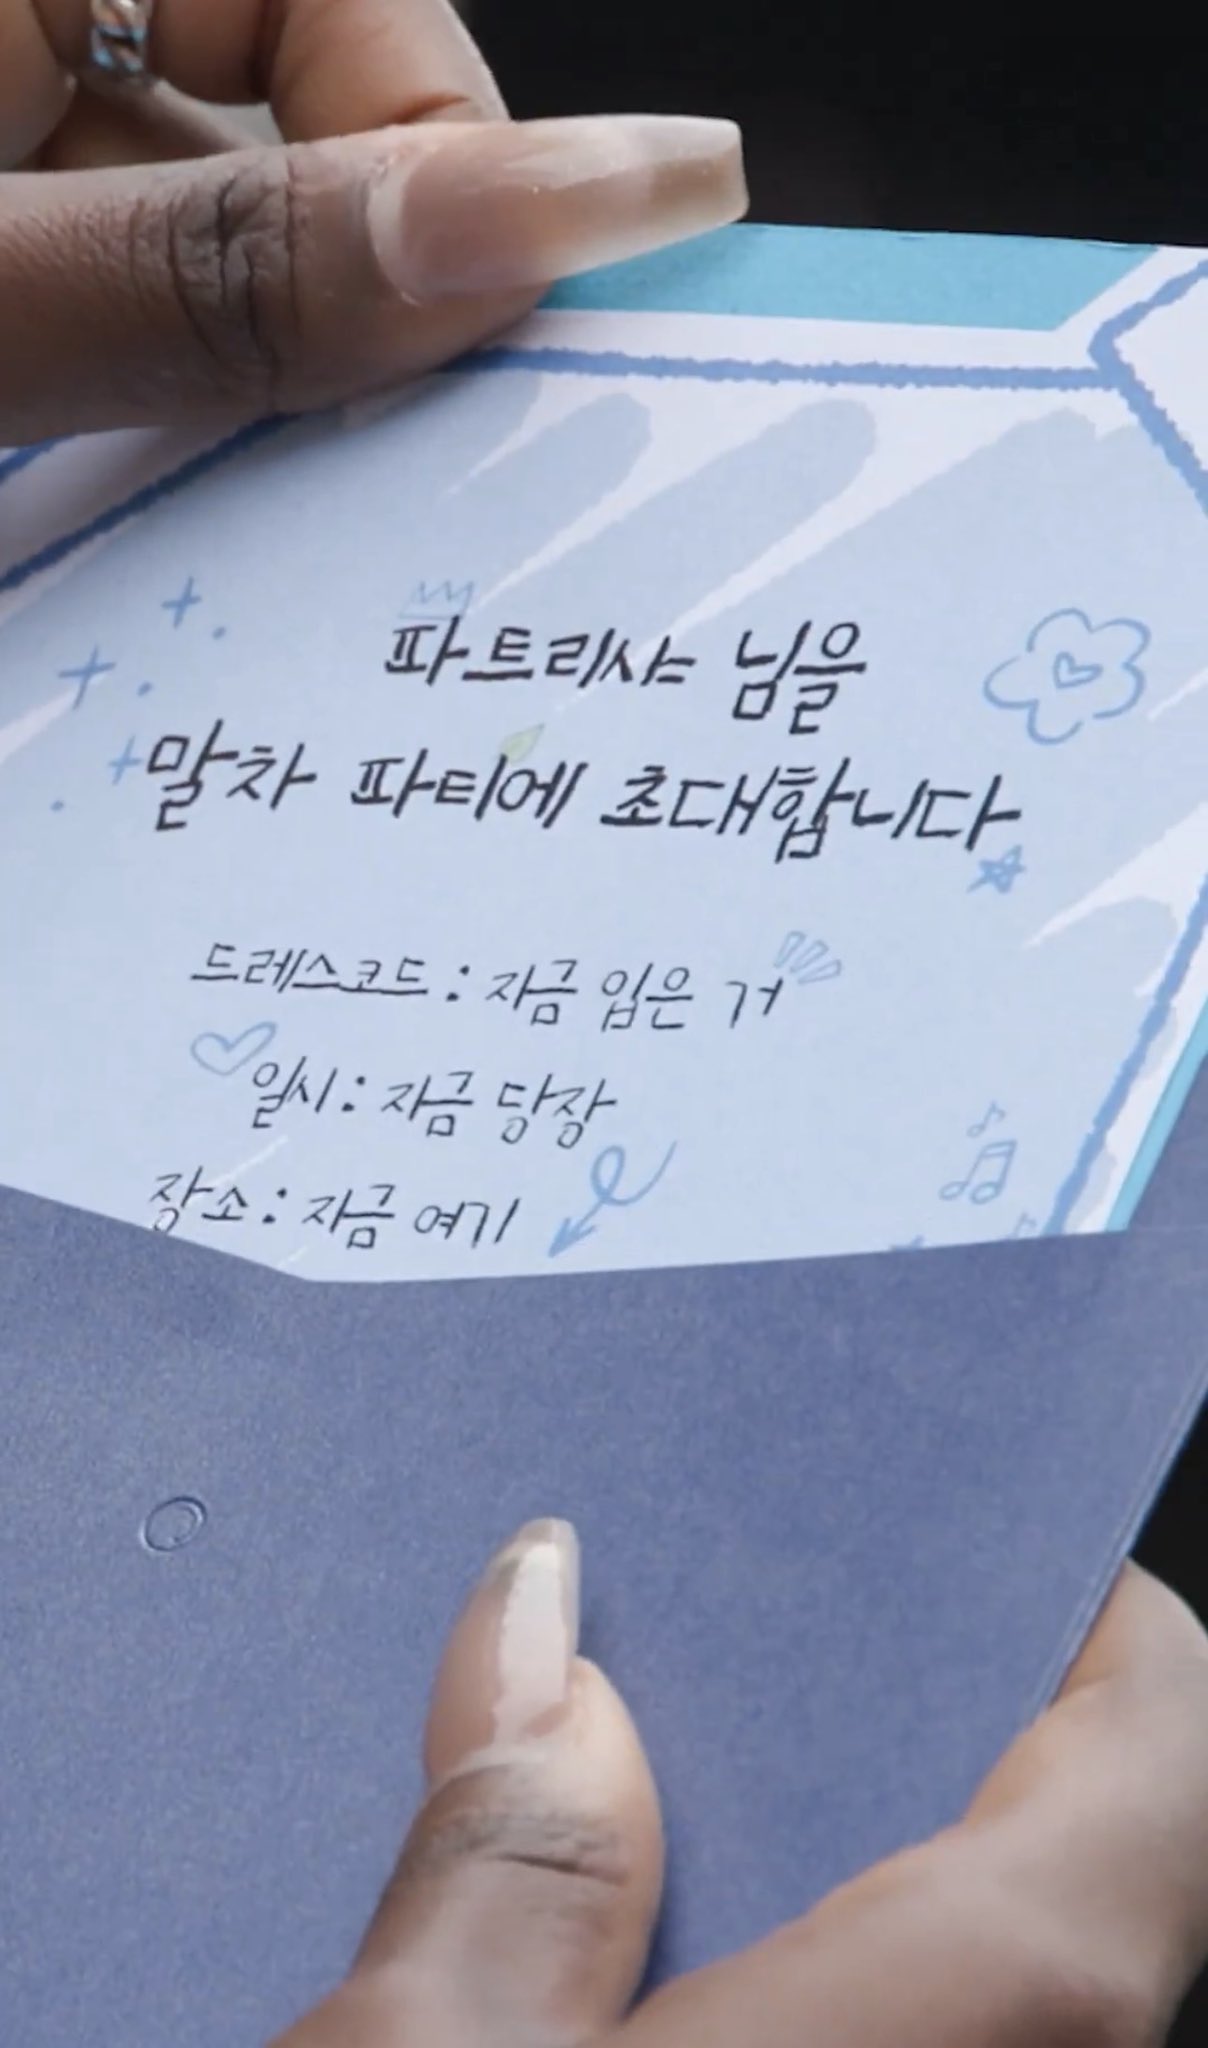 파트리샤 님을
말차 파티에 초대합니다
드레스코드 : 지금 입은 거
일시 : 지금 당장
장소 : 지금 여기